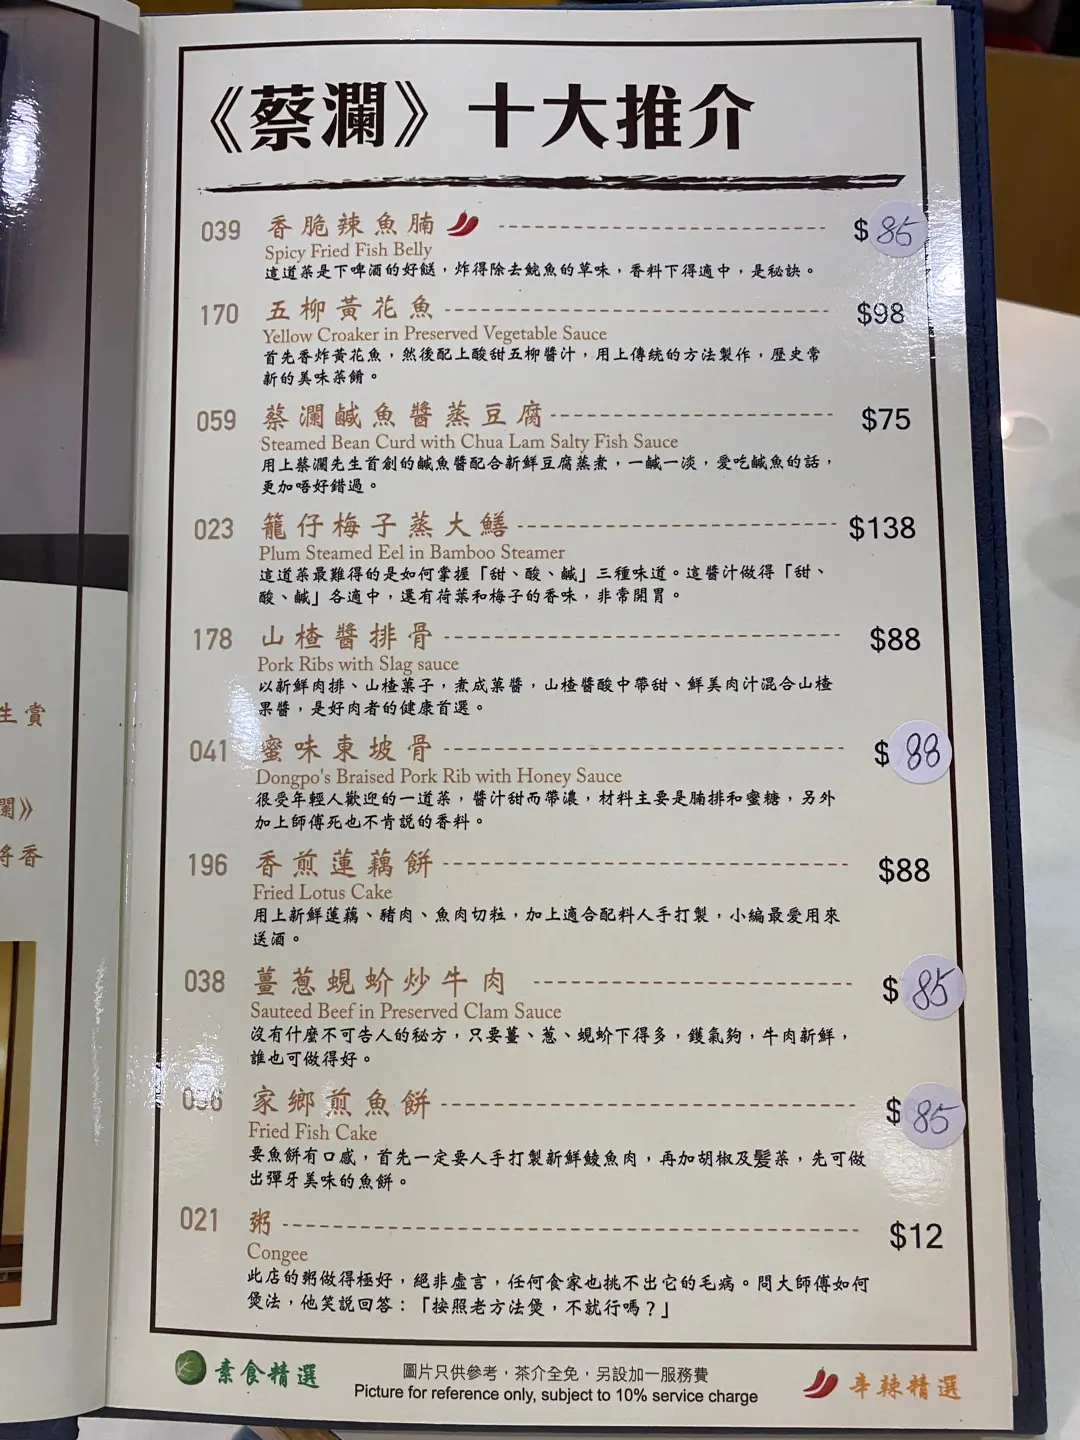 《蔡瀾》十大推介
039 香脆辣魚腩 $85
Spicy Fried Fish Belly
這道菜是下啤酒的好餸，炸得除去鯇魚的草味，香料下得適中，是秘訣。
170 五柳黃花魚 $98
Yellow Croaker in Preserved Vegetable Sauce
首先香炸黃花魚，然後配上酸甜五柳醬汁，用上傳統的方法製作，歷史常
新的美味菜餚。
059 蔡瀾鹹魚醬蒸豆腐 $75
Steamed Bean Curd with Chua Lam Salty Fish Sauce
用上蔡瀾先生首創的鹹魚醬配合新鮮豆腐蒸煮，一鹹一淡，愛吃鹹魚的話，
更加唔好錯過。
023 籠仔梅子蒸大鱔 $138
Plum Steamed Eel in Bamboo Steamer
這道菜最難得的是如何掌握「甜、酸、鹹」三種味道。這醬汁做得「甜、
酸、鹹」各適中，還有荷葉和梅子的香味，非常開胃。
178 山楂醬排骨 $88
Pork Ribs with Slag sauce
以新鮮肉排、山楂菓子，煮成菓醬，山楂醬酸中帶甜、鮮美肉汁混合山楂
果醬，是好肉者的健康首選。
041 蜜味東坡骨 $88
Dongpo's Braised Pork Rib with Honey Sauce
很受年輕人歡迎的一道菜，醬汁甜而帶濃，材料主要是腩排和蜜糖，另外
加上師傅死也不肯説的香料。
196 香煎蓮藕餅 $88
Fried Lotus Cake
用上新鮮蓮藕、豬肉、魚肉切粒，加上適合配料人手打製，小編最愛用來
送酒。
038 薑蔥蜆蚧炒牛肉 $85
Sauteed Beef in Preserved Clam Sauce
沒有什麼不可告人的秘方，只要薑、蔥、蜆蚧下得多，鑊氣夠，牛肉新鮮，
誰也可做得好。
036 家鄉煎魚餅 $85
Fried Fish Cake
要魚餅有口感，首先一定要人手打製新鮮鯪魚肉，再加胡椒及髮菜，先可做
出彈牙美味的魚餅。
021 粥 $12
Congee
此店的粥做得極好，絕非虛言，任何食家也挑不出它的毛病。問大師傅如何
煲法，他笑説回答：「按照老方法煲，不就行嗎？」
素食精選
圖片只供參考，茶介全免，另設加一服務費
Picture for reference only, subject to 10% service charge
辛辣精選
生賞
瀾》
將香